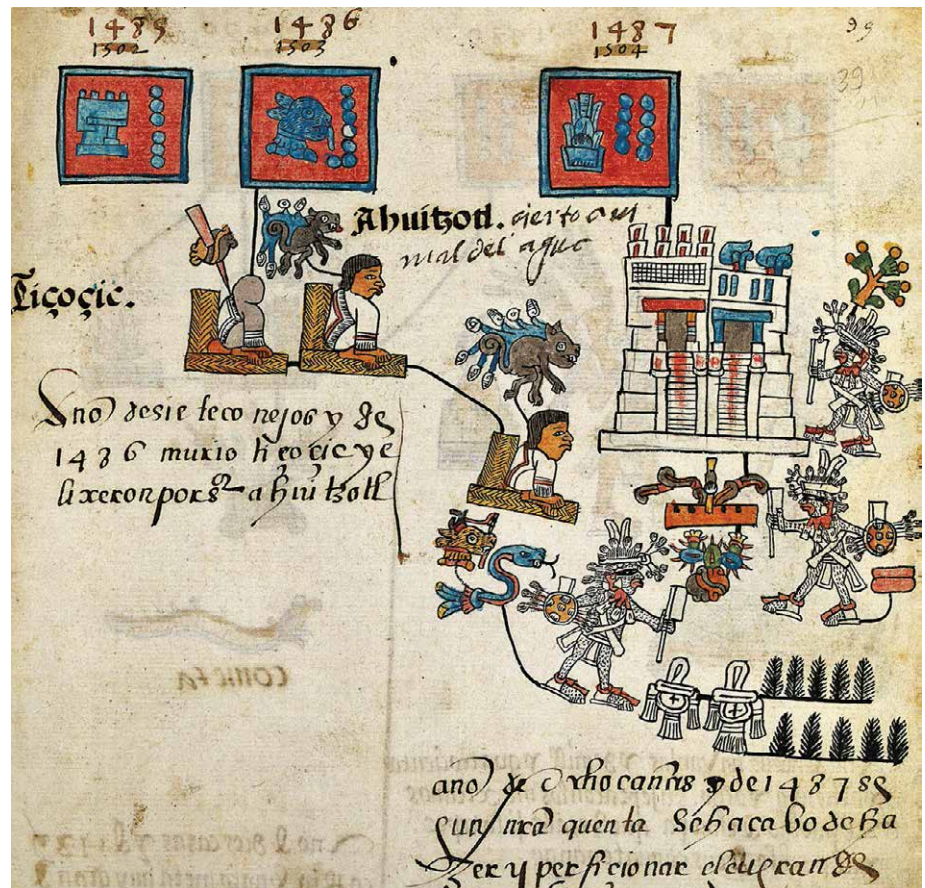 1485 1486 1487 39
1502 1503 1504
39
Ahuitzotl. çierto ani
mal del agua
Tiçoçic.
Año de siete conejos y de
1486 murio tiçoçic y e
lixeron por sr ahuitzotl
cometa
año de ocho cañas y de 1487 se
gun nra quenta Se hacabo de ha
zer y perficionar el cu grande